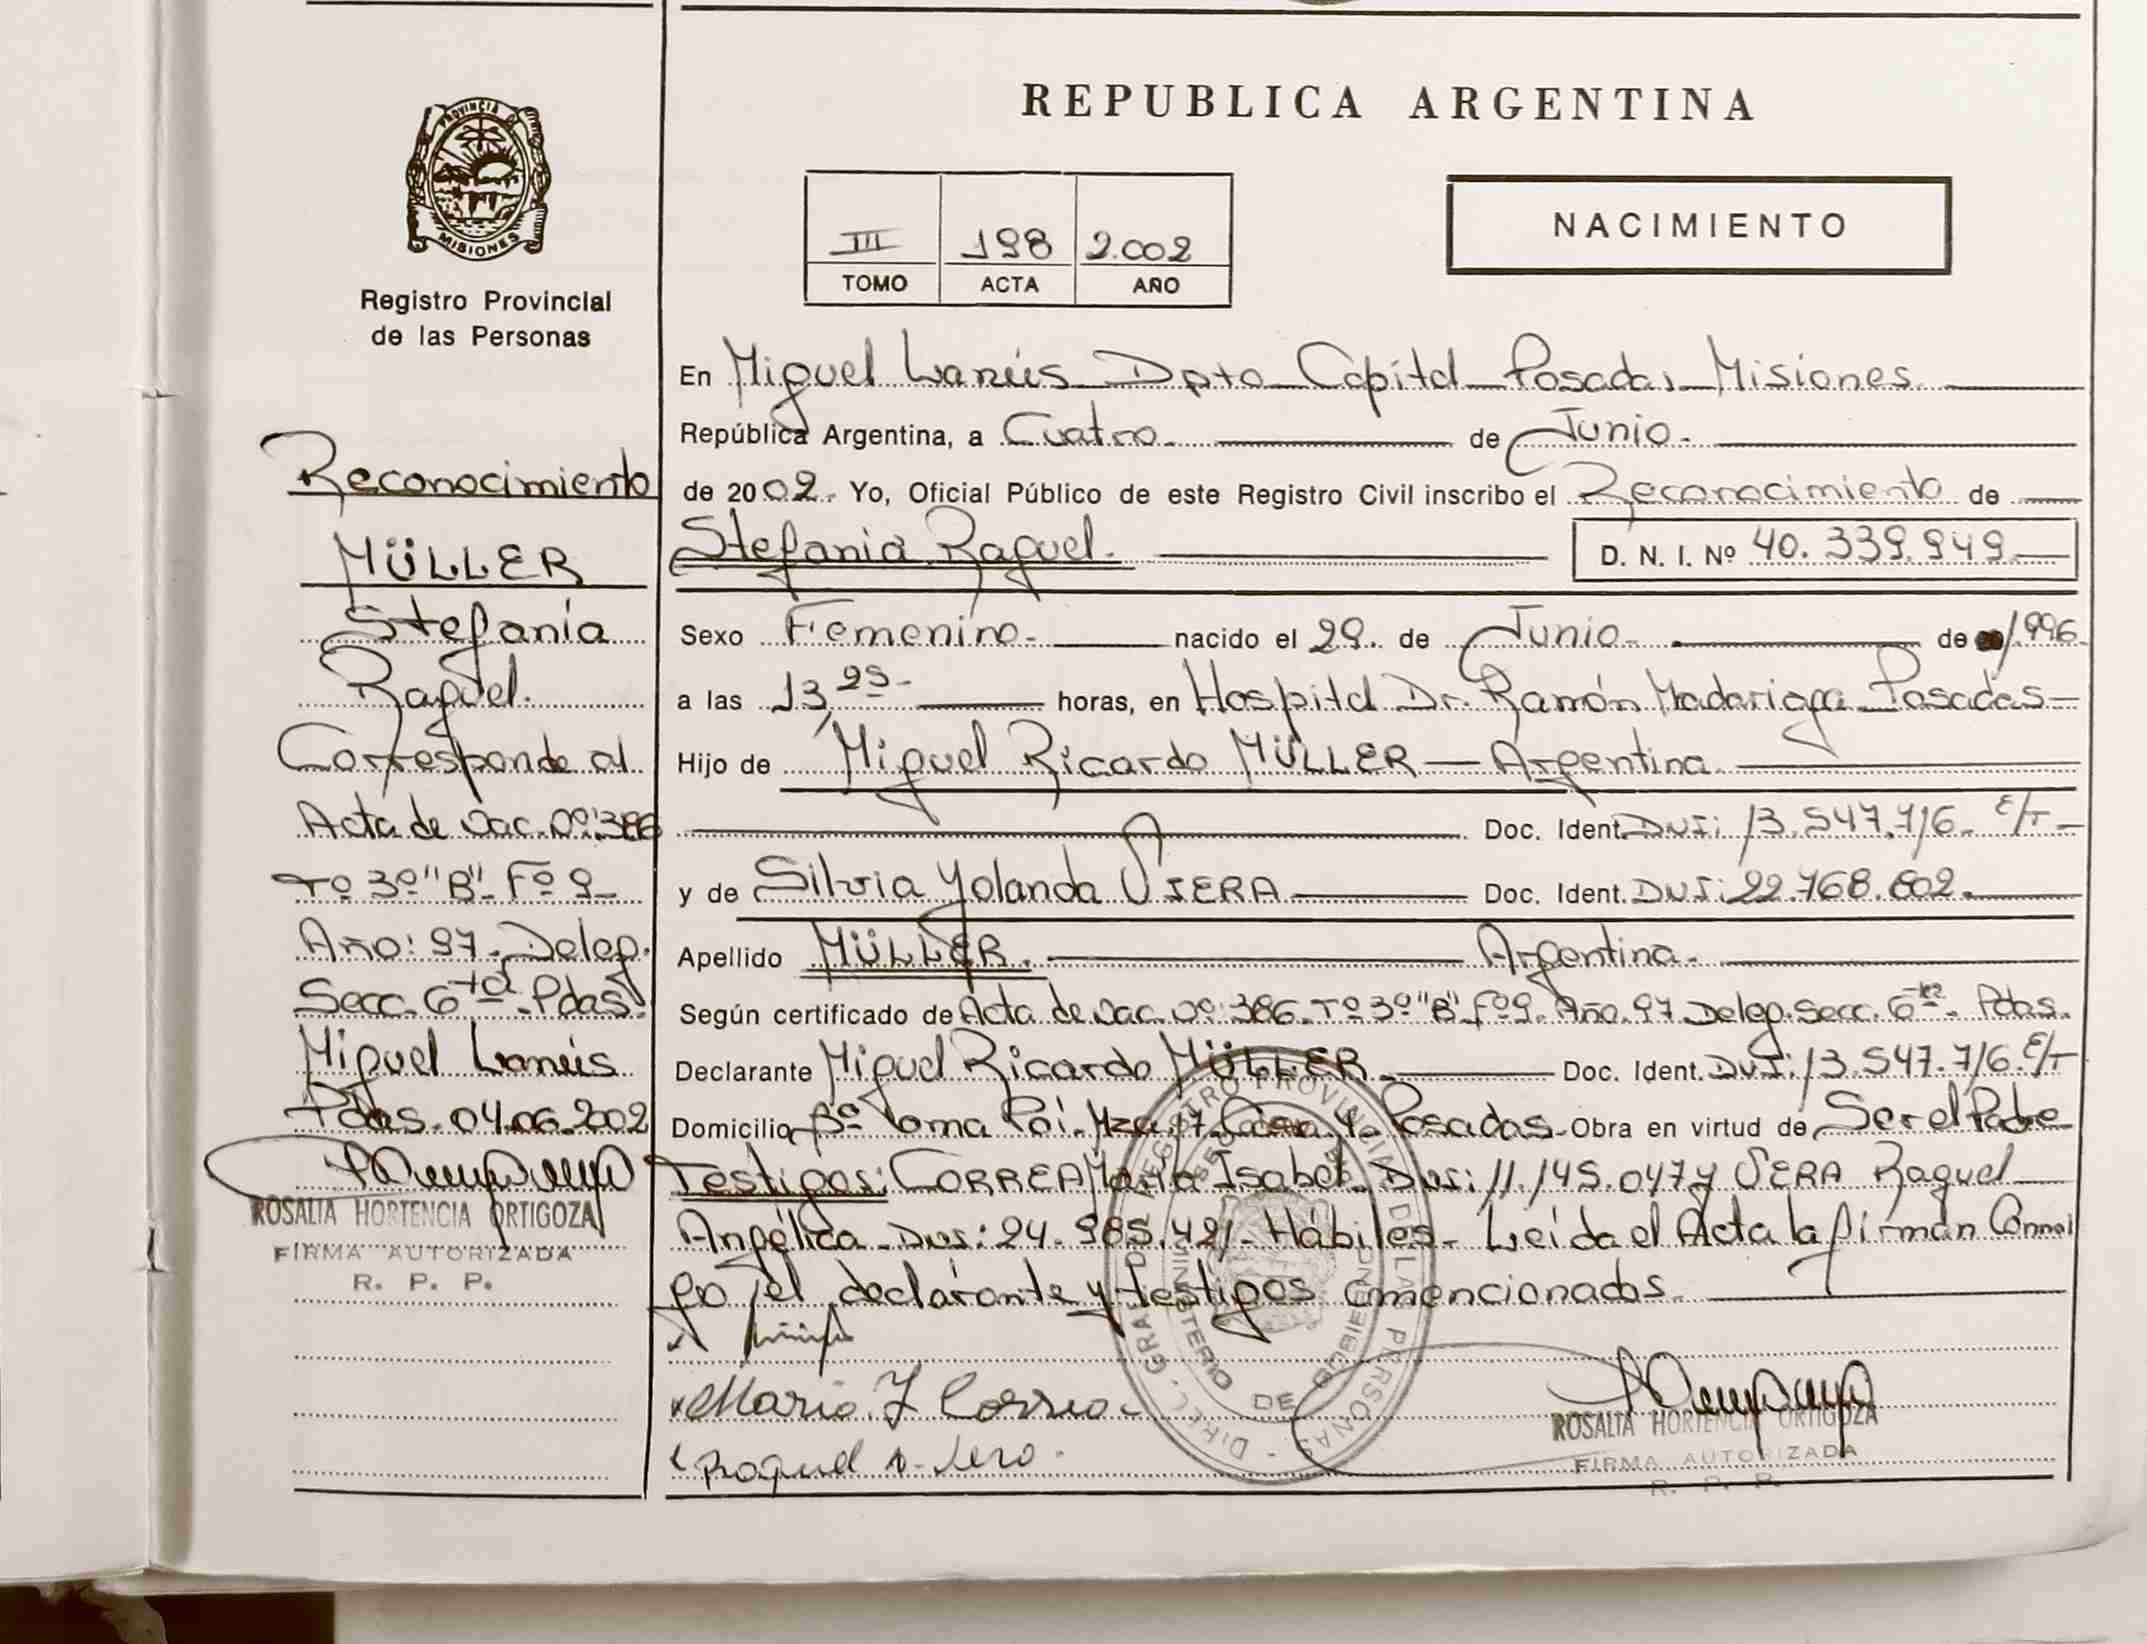 REPUBLICA ARGENTINA
PROVINCIA DE
MISIONES
Registro Provincial
de las Personas
III 198 2.002
TOMO ACTA AÑO
NACIMIENTO
Reconocimiento
MÜLLER
Stefanía
Raquel.
Corresponde al
Acta de Nac. Nº: 386
Tº 3º "B" Fº 9
Año: 97. Deleg.
Secc. 6ta. Pdas.
Miguel Lanús
Pdas. 04.06.2002
ROSALIA HORTENCIA ORTIGOZA
FIRMA AUTORIZADA
R. P. P.
En Miguel Lanús Dpto Capital Posadas Misiones
República Argentina, a Cuatro de Junio.
de 2002. Yo, Oficial Público de este Registro Civil inscribo el Reconocimiento de
Stefania Raquel. D. N. I. Nº 40.339.949
Sexo Femenino. nacido el 29. de Junio. de 1.996.
a las 13,25 horas, en Hospital Dr. Ramón Madariaga Posadas
Hijo de Miguel Ricardo MÜLLER — Argentina.
Doc. Ident. DNI: 13.547.716. E/T
y de Silvia Yolanda SERA Doc. Ident. DNI: 22.768.802.
Apellido MÜLLER. Argentina.
Según certificado de Acta de Nac. Nº: 386. Tº 3º "B" Fº 9. Año. 97 Deleg. Secc. 6ta. Pdas.
Declarante Miguel Ricardo MÜLLER Doc. Ident. DNI: 13.547.716. E/T
Domicilio Bº Loma Poi. Mza. 17. Casa 4. Posadas. Obra en virtud de Ser el Padre
Testigos: CORREA María Isabel. DNI: 11.145.047 y SERA Raquel
Angélica. DNI: 24.985.421. Hábiles. Leída el Acta la firman Conmi
go el declarante y testigos mencionados.
Raquel A. Sera.
ROSALIA HORTENCIA ORTIGOZA
FIRMA AUTORIZADA
R. P. P.
DIREC. GRAL. DEL REGISTRO PROVINCIAL DE LAS PERSONAS
MINISTERIO DE GOBIERNO